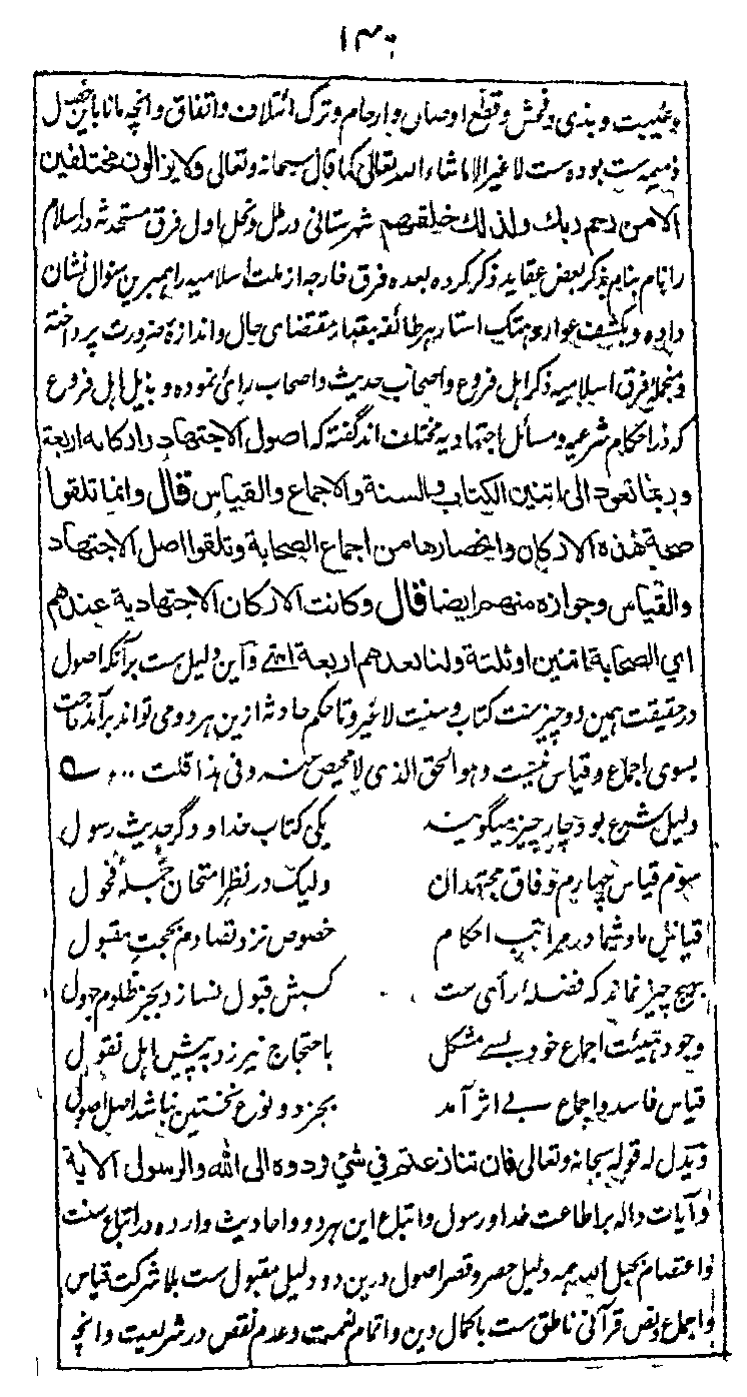 ۱۳۰
وغیبت و بذی و فحش و قطع اوصال وارحام وترک ائتلاف واتفاق وانچه مانا باین خصال
ذمیمه ست بوده ست لا غیر الا ماشاء الله تعالی کما قال سبحانه وتعالی ولا یزالون مختلفین
الا من رحم ربك ولذلك خلقهم شهرستانی در ملل ونحل اول فرق مستحدثه در اسلام
را نام بنام بذکر بعض عقاید ذکر کرده بعده فرق خارجه از ملت اسلامیه را همبرین منوال نشان
داده و بکشف عوار و هتک استار هر طائفه بمقدار مقتضای حال واندازۀ ضرورت پرداخته
ومنجملۀ فرق اسلامیه ذکر اهل فروع واصحاب حدیث واصحاب رائ نموده و بذیل اهل فروع
که در احکام شرعیه و مسائل اجتهادیه مختلف اند گفته که اصول الاجتهاد وارکانه اربعة
وربما تعود الی اثنین الکتاب والسنة والاجماع والقیاس قال وانما تلقوا
صحة هذه الارکان وانحصارها من اجماع الصحابة وتلقوا اصل الاجتهاد
والقیاس وجوازه منهم ایضا قال وکانت الارکان الاجتهادیة عندهم
ای الصحابة اثنین او ثلثة ولنا بعدهم اربعة انتهی واین دلیل ست برآنکه اصول
در حقیقت همین دو چیزست کتاب و سنت لا غیر وتا حکم حادثه ازین هر دو می تواند برآمد حاجت
بسوی اجماع و قیاس نیست وهو الحق الذی لا محیص عنه وفی هذا قلت
دلیل شرع بود چار چیز میگویند یکی کتاب خدا و دگر حدیث رسول
سوم قیاس چهارم وفاق مجتهدان ولیک در نظر امتحان جمله فحول
قیاس ما وشما در مراتب احکام خصوص نزد تصادم بحجت مقبول
بهیچ چیز نماند که فضله رأی ست کسیش قبول نسازد بجز ظلوم جهول
وجود هیئت اجماع خود بسے مشکل باحتجاج نیرزد به پیش اهل نقول
قیاس فاسد و اجماع بے اثر آمد بجز دو نوع نخستین نباشد اصل اصول
ویدل له قوله سبحانه وتعالی فان تنازعتم فی شیء ردوه الی الله والرسول الآیة
وآیات داله بر اطاعت خدا ورسول واتباع این هر دو واحادیث وارده در اتباع سنت
واعتصام بحبل الله همه دلیل حصر و قصر اصول درین دو دلیل مقبول ست بلا شرکت قیاس
واجماع ونص قرآنی ناطق ست باکمال دین واتمام نعمت وعدم نقص در شریعت وانچه